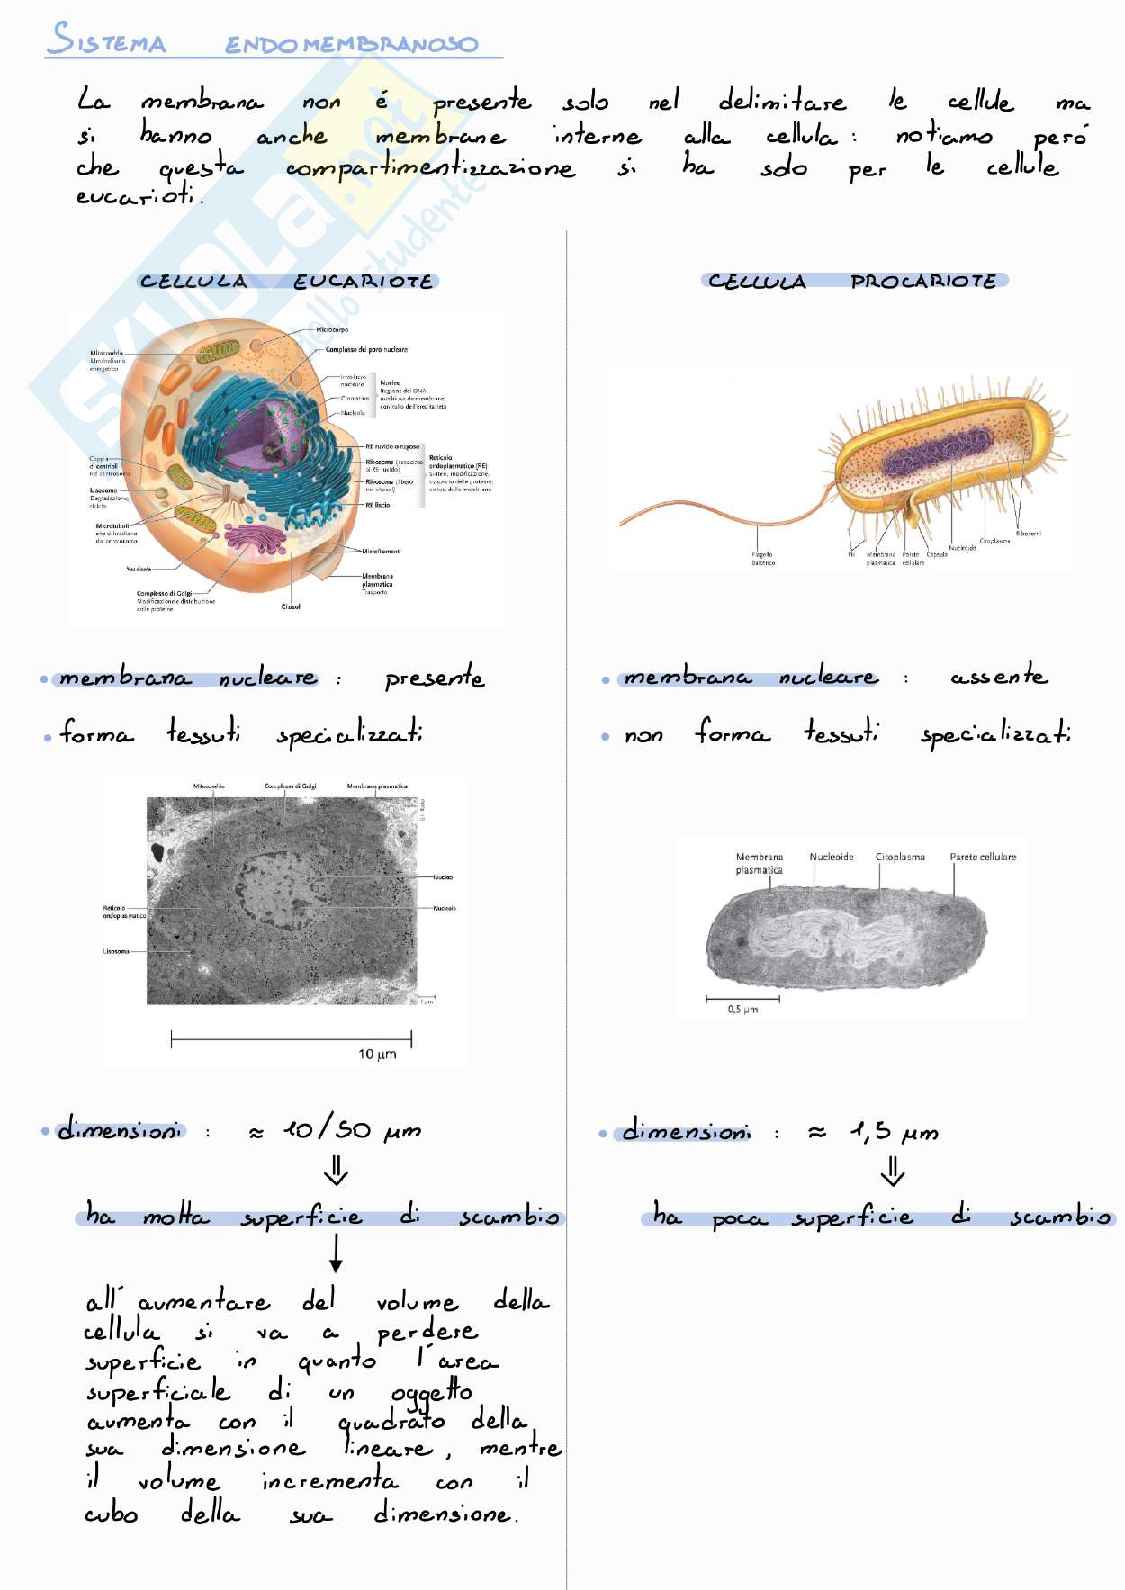 SISTEMA ENDOMEMBRANOSO
La membrana non é presente solo nel delimitare le cellule ma
si hanno anche membrane interne alla cellula: notiamo peró
che questa compartimentizzazione si ha solo per le cellule
eucarioti.
CELLULA EUCARIOTE
Microcorpo
Complesso del poro nucleare
Mitocondrio
Nucleo
Cromatina
Nucleolo
RE ruvido o rugoso
Reticolo
endoplasmatico (RE)
RE liscio
Lisosoma
Microtubuli
Microfilamenti
Membrana
plasmatica
Complesso di Golgi
Modificazione e distribuzione
delle proteine
Citosol
membrana nucleare : presente
forma tessuti specializzati
Mitocondrio Complesso di Golgi Membrana plasmatica
Nucleo
Reticolo
endoplasmatico
Nucleolo
Lisosoma
1 µm
10 µm
dimensioni : ≈ 10/50 µm
⇓
ha molta superficie di scambio
↓
all'aumentare del volume della
cellula si va a perdere
superficie in quanto l'area
superficiale di un oggetto
aumenta con il quadrato della
sua dimensione lineare, mentre
il volume incrementa con il
cubo della sua dimensione.
CELLULA PROCARIOTE
Flagello
batterico
Pili
Membrana
plasmatica
Parete
cellulare
Capsula
Nucleoide
Citoplasma
Ribosomi
membrana nucleare : assente
non forma tessuti specializzati
Membrana
plasmatica
Nucleoide Citoplasma Parete cellulare
0,5 µm
dimensioni : ≈ 1,5 µm
⇓
ha poca superficie di scambio
SKUOLA.net
dello studente